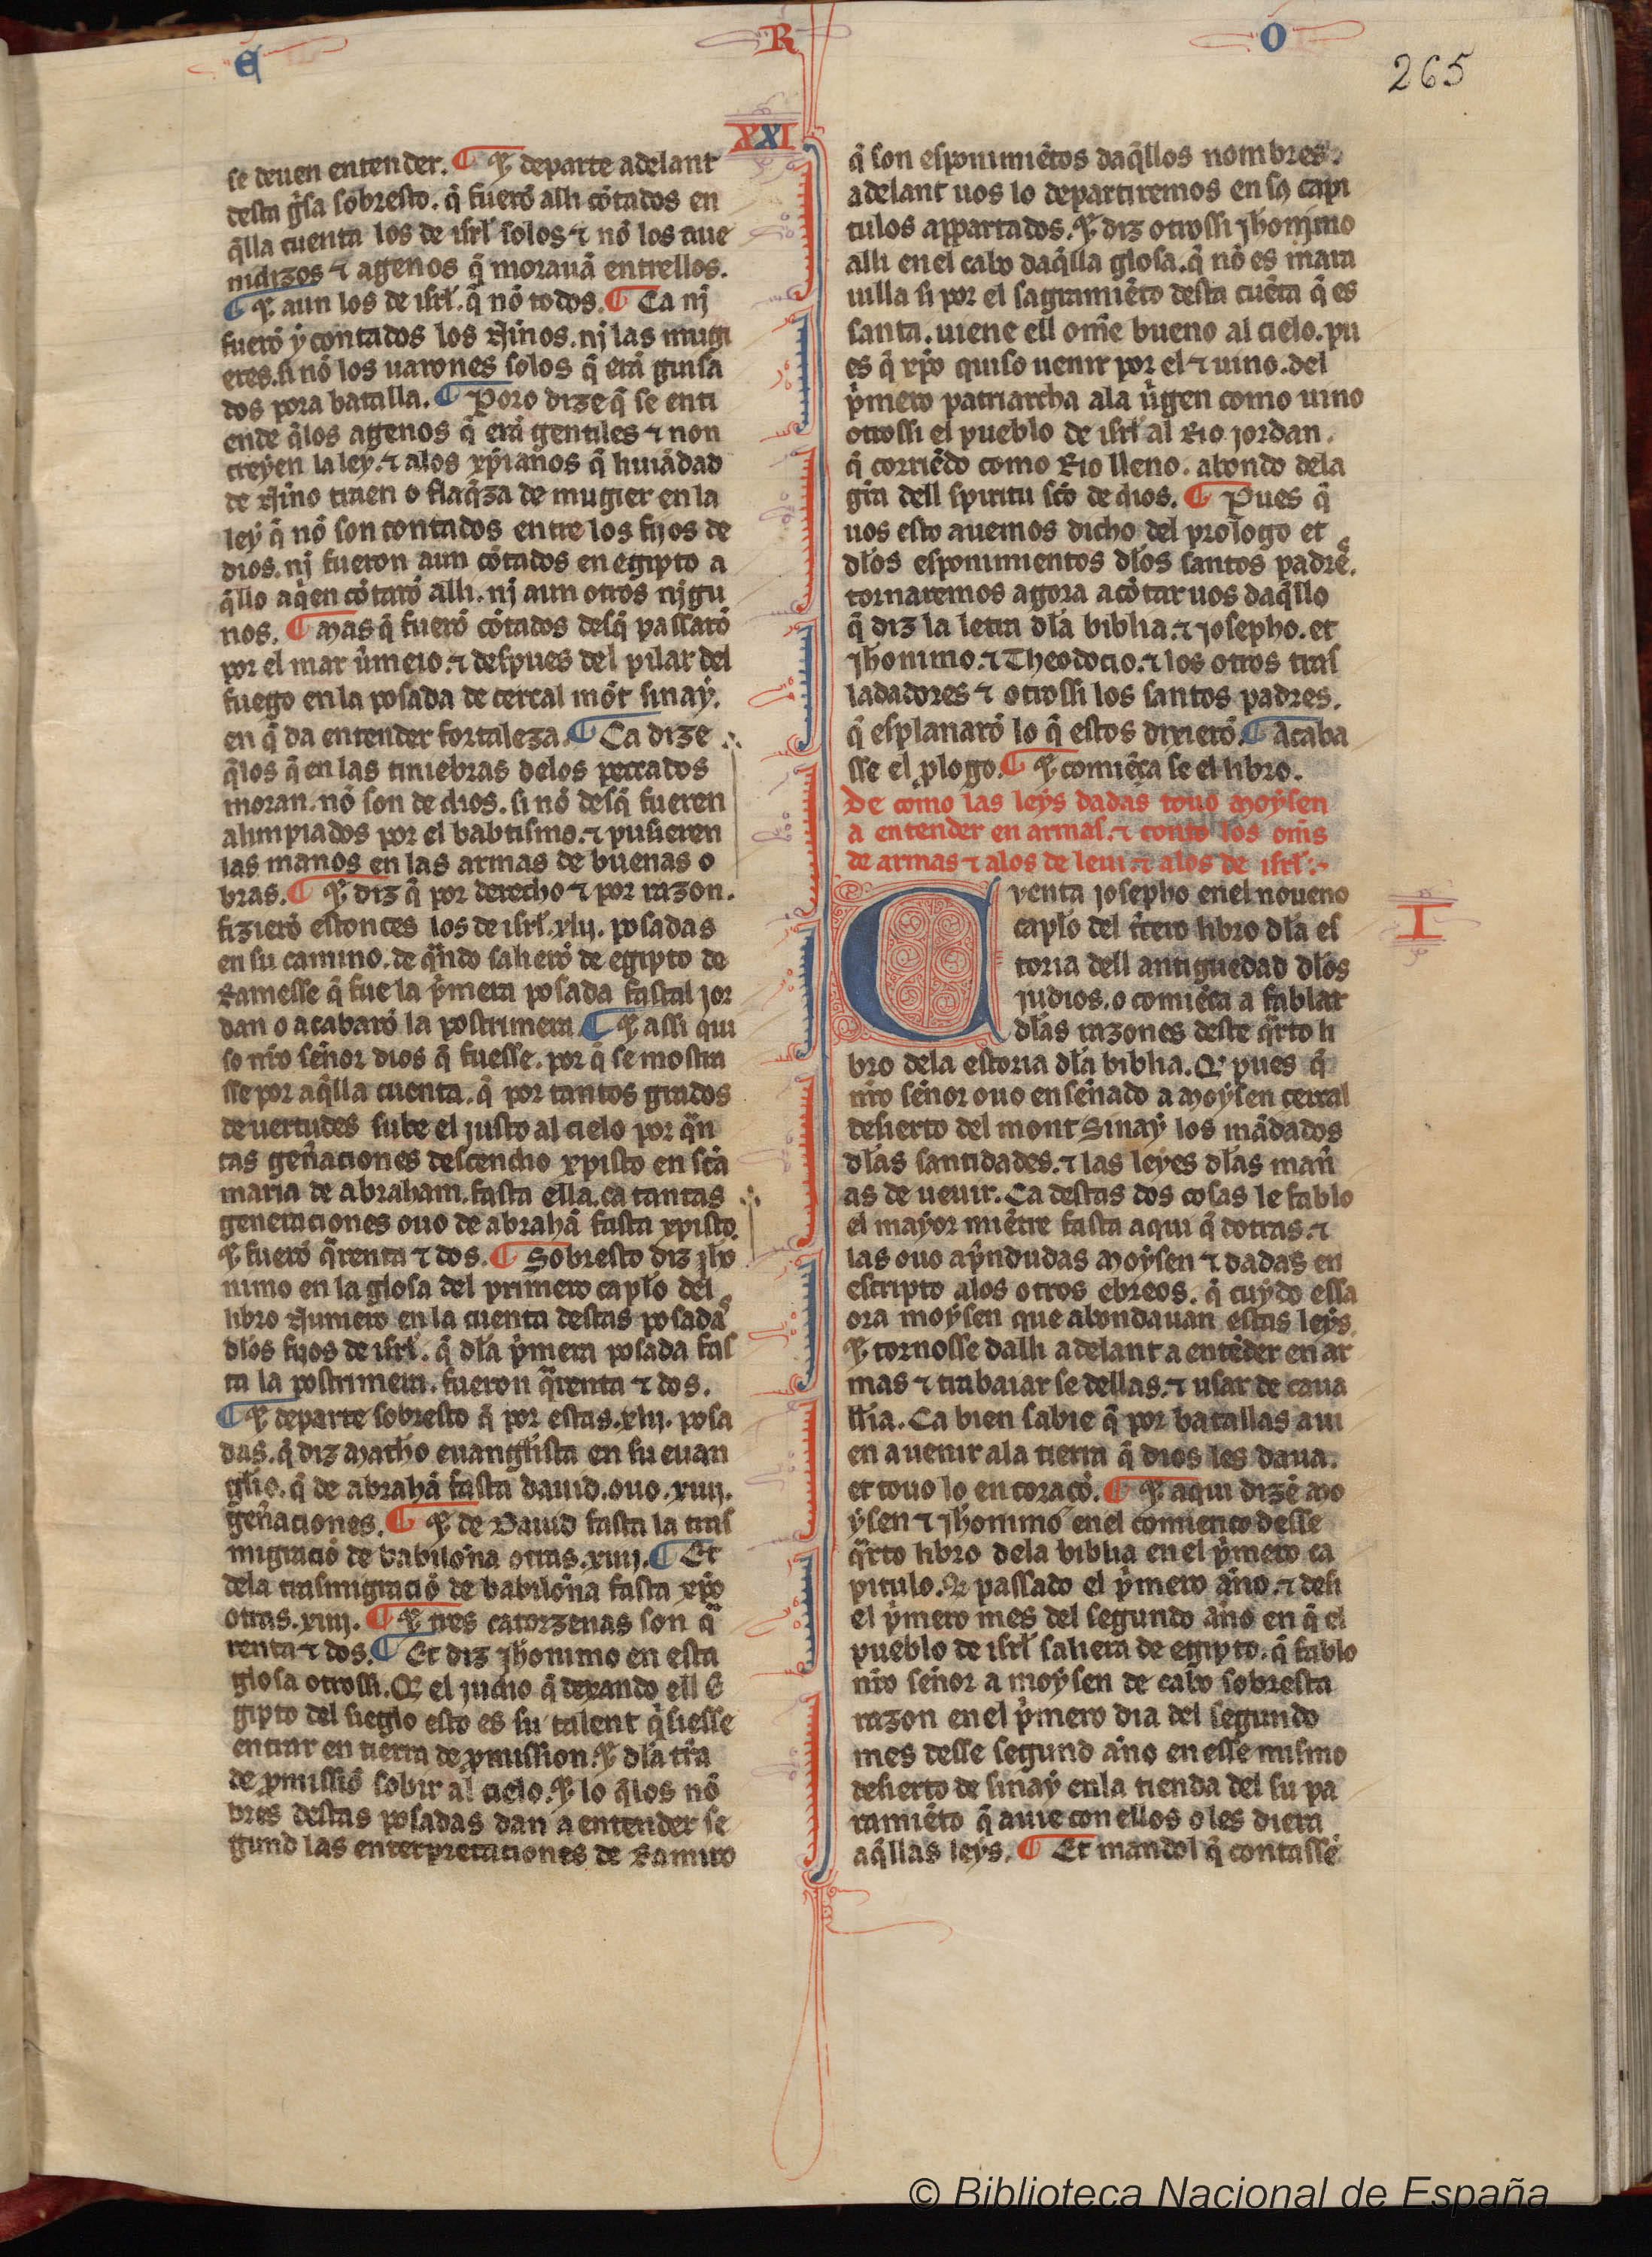 E R O
265
XXI
se deuen entender. ¶ Et departe adelant
desta g̃sa sobresto. q̃ fuerõ alli cõtados en
q̃lla cuenta los de isrl̃ solos ⁊ nõ los aue
nidizos ⁊ agenos q̃ morauã entrellos.
¶ Et aun los de isrl̃. q̃ nõ todos. ¶ Ca nj
fuerõ y contados los Njnos. nj las mugi
eres. si nõ los uarones solos q̃ erã guisa
dos pora batalla. ¶ Poro dize q̃ se enti
ende q̃los agenos q̃ erã gentiles ⁊ non
creyen la ley. ⁊ alos xp̃ianos q̃ huiãdad
de Njno traen o flaq̃za de mugier en la
ley q̃ nõ son contados entre los fijos de
dios. nj fueron aun cõtados en egipto a
q̃llo aq̃en cõtarõ alli. nj aun otros njgu
nos. ¶ Mas q̃ fuerõ cõtados desq̃ passarõ
por el mar u̇meio. ⁊ despues del pilar del
fuego en la posada de cercal mõt sinay.
en q̃ da entender fortaleza. ¶ Ca dize
q̃los q̃ en las tiniebras delos peccados
moran. nõ son de dios. si nõ desq̃ fueren
alimpiados por el babtismo. ⁊ pusieren
las manos en las armas de buenas o
bras. ¶ Et diz q̃ por derecho ⁊ por razon.
fizierõ estonces los de isrl̃. xlij. posadas
en su camino. de q̃ndo salierõ de egipto de
Ramesse q̃ fue la p̃mera posada fastal jor
dan o acabarõ la postrimera. ¶ Et assi qui
so nr̃o señor dios q̃ fuesse. por q̃ se mostra
sse por aq̃lla cuenta. q̃ por tantos grados
de uertudes sube el justo al cielo por q̃n
tas geñaciones descendio xpisto en sc̃a
maria de abraham. fasta ella. ca tantas
generaciones ouo de abrahã fasta xpisto.
Et fuerõ q̃renta ⁊ dos. ¶ Sobresto diz jh̃o
nimo en la glosa del primero capl̃o del
libro Numero en la cuenta destas posadas
dl̃os fijos de isrl̃. q̃ dl̃a p̃mera posada fas
ta la postrimera. fueron q̃renta ⁊ dos.
¶ Et departe sobresto q̃ por estas. xlij. posa
das. q̃ diz Math̃o euangl̃ista en su euan
gl̃io. q̃ de abrahã fasta dauid. ouo. xiiij.
geñaciones. ¶ Et de Dauid fasta la tras
migraciõ de babiloña otras. xiiij. ¶ Et
dela trasmigraciõ de babiloña fasta xp̃o
otras. xiiij. ¶ Et tres catorzenas son q̃
renta ⁊ dos. ¶ Et diz jh̃onimo en esta
glosa otrossi. Q̃ el judio q̃ dexando ell E
gipto del sieglo esto es su talent q̃siesse
entrar en tierra de p̃mission. Et dl̃a tr̃a
de p̃missiõ sobir al cielo. Et lo q̃los nõ
bres destas posadas dan a entender se
gund las enterpretaciones de Ramiro
q̃ son esponimiẽtos daq̃llos nombres.
adelant uos lo departiremos en sos capi
tulos appartados. Et diz otrossi jh̃onimo
alli en el cabo daq̃lla glosa. q̃ nõ es mara
uilla si por el sagramiẽto desta cuẽta q̃ es
santa. uiene ell om̃e bueno al cielo. pu
es q̃ xp̃o quiso uenir por el ⁊ uino. del
p̃mero patriarcha ala u̇gen como uino
otrossi el pueblo de isrl̃ al Rio jordan.
q̃ corriẽdo como Rio lleno. abondo dela
gr̃a dell spiritu sc̃o de dios. ¶ Pues q̃
uos esto auemos dicho del prologo et
dl̃os esponimientos dl̃os santos padres.
tornaremos agora a cõtar uos daq̃llo
q̃ diz la letra dl̃a biblia. ⁊ josepho. et
jh̃onimo. ⁊ Theodocio. ⁊ los otros tras
ladadores ⁊ otrossi los santos padres.
q̃ esplanarõ lo q̃ estos dixierõ. ¶ Acaba
sse el p̃logo. ¶ Et comiẽça se el libro.
De como las leys dadas touo Moysen
a entender en armas. ⁊ conto los om̃s
de armas ⁊ alos de leui. ⁊ alos de isrl̃.
I
Cuenta josepho en el noueno
capl̃o del t̃cero libro dl̃a es
toria dell antiguedad dl̃os
judios. o comiẽça a fablar
dl̃as razones deste q̃rto li
bro dela estoria dl̃a biblia. Q̃ pues q̃
nr̃o señor ouo enseñado a Moysen cercal
desierto del mont Sinay los mãdados
dl̃as santidades. ⁊ las leyes dl̃as mañ
as de ueuir. Ca destas dos cosas le fablo
el mayor miẽtre fasta aqui q̃ dotras. ⁊
las ouo ap̃ndudas Moysen ⁊ dadas en
escripto alos otros ebreos. q̃ cuydo essa
ora moysen que abondauan estas leys.
Et tornosse dalli adelant a entẽder en ar
mas ⁊ trabaiar se dellas. ⁊ usar de caua
ll̃ia. Ca bien sabie q̃ por batallas aui
en a uenir ala tierra q̃ dios les daua.
et touo lo en coraçõ. ¶ Et aqui dizẽ Mo
ysen ⁊ jh̃onimo en el comienço desse
q̃rto libro dela biblia en el p̃mero ca
pitulo. Q̃ passado el p̃mero año. ⁊ desi
el p̃mero mes del segundo año en q̃ el
pueblo de isrl̃ saliera de egipto. q̃ fablo
nr̃o señor a moysen de cabo sobresta
razon en el p̃mero dia del segundo
mes desse segund año en esse mismo
desierto de sinay en la tienda del su pa
ramiẽto q̃ auie con ellos o les diera
aq̃llas leys. ¶ Et mandol q̃ contassẽ
© Biblioteca Nacional de España